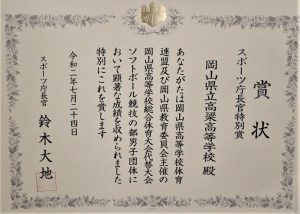 賞状
スポーツ庁長官特別賞
岡山県立高梁高等学校 殿
あなたがたは岡山県高等学校体育
連盟及び岡山県教育委員会主催の
岡山県高等学校総合体育大会代替大会
ソフトボール競技の部男子団体に
おいて顕著な成績を収められました
特別にこれを賞します
令和二年七月二十四日
スポーツ庁長官 鈴木大地